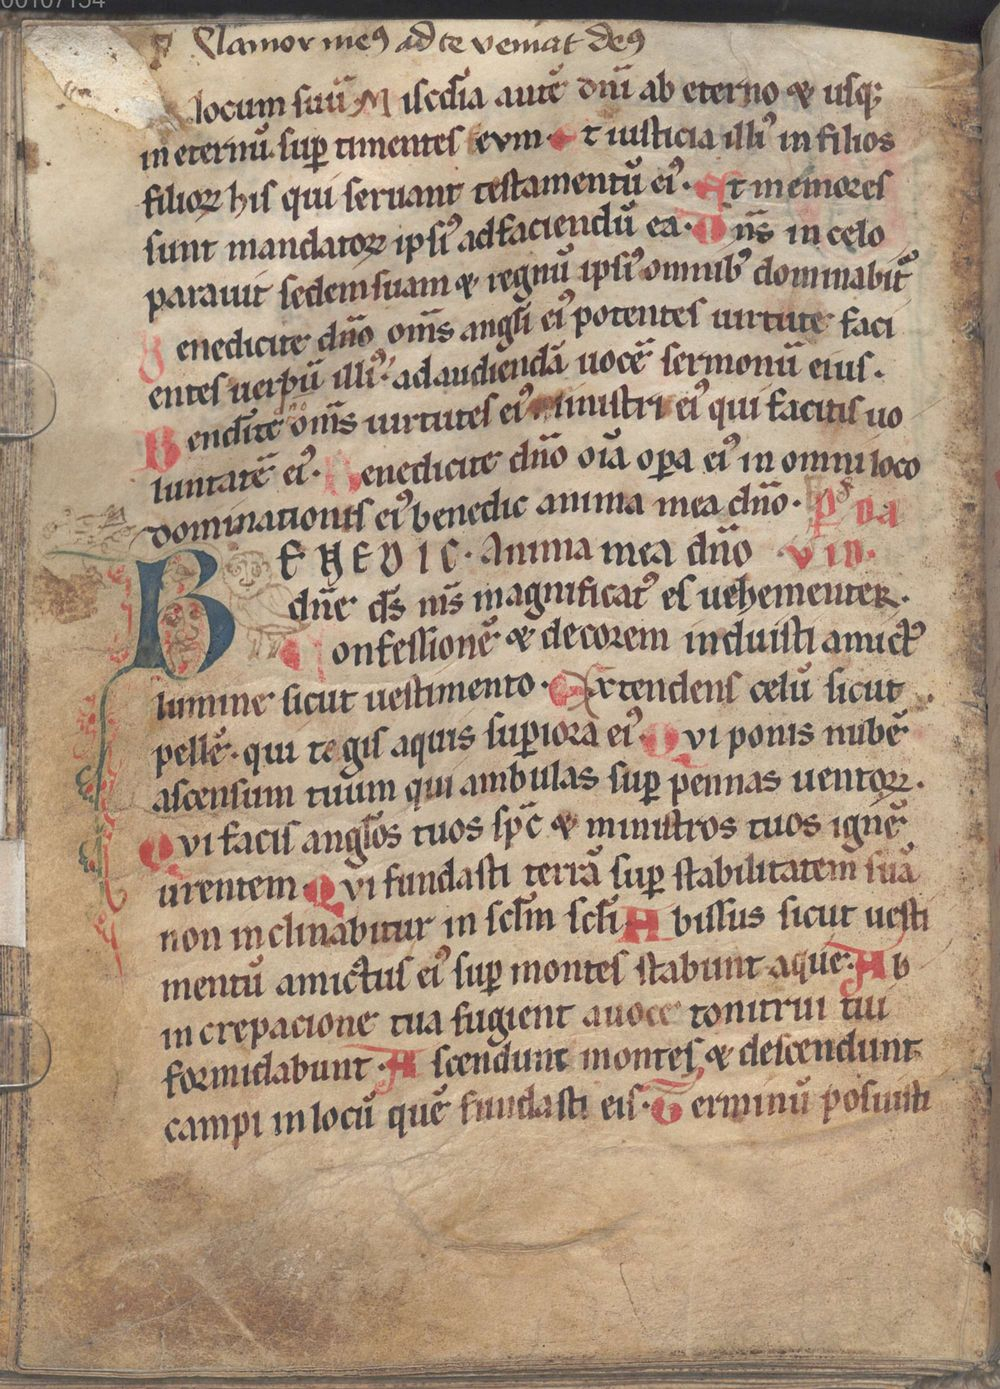 00107154
Clamor meꝰ ad te veniat deꝰ
locum suū Misc̄dia autē dn̄i ab eterno ⁊ usq;
in eternū sup̱ timentes evm. Et iusticia illiꝰ in filios
filioꝝ his qui seruant testamentū eiꝰ. Et memores
sunt mandatoꝝ ipsiꝰ ad faciendū ea. Dn̄s in celo
parauit sedem suam ⁊ regnū ipsiꝰ omnibꝰ dominabit᷑
Benedicite dn̄o om̄s angl̄i eiꝰ potentes uirtute faci
entes uerbū illiꝰ ad audiendā uocē sermonū eius.
Bendic̄te om̄s uirtutes eiꝰ ministri eiꝰ qui facitis uo
luntatē eiꝰ. Benedicite dn̄o oīa oꝑa eiꝰ in omni loco
dominationis eiꝰ benedic anima mea dn̄o.
BENEDIC. Anima mea dn̄o
dn̄e ds̄ m̄s magnificatꝰ es uehementer.
Confessionē ⁊ decorem induisti amictꝰ
lumine sicut uestimento. Extendens celū sicut
pellē. qui tegis aquis suꝑiora eiꝰ. Qvi ponis nubē
ascensum tuum qui ambulas sup̱ pennas uentoꝝ.
Qvi facis angl̄os tuos sp̄c ⁊ ministros tuos ignē
urentem Qvi fundasti terrā sup̱ stabilitatem suā
non inclinabitur in scl̄m scl̄i Abissus sicut uesti
mentū amictus eiꝰ sup̱ montes stabunt aque. Ab
increpacione tua fugient a uoce tonitrui tui
formidabunt. Ascendunt montes ⁊ descendunt
campi in locū quē fundasti eis. Terminū posuisti